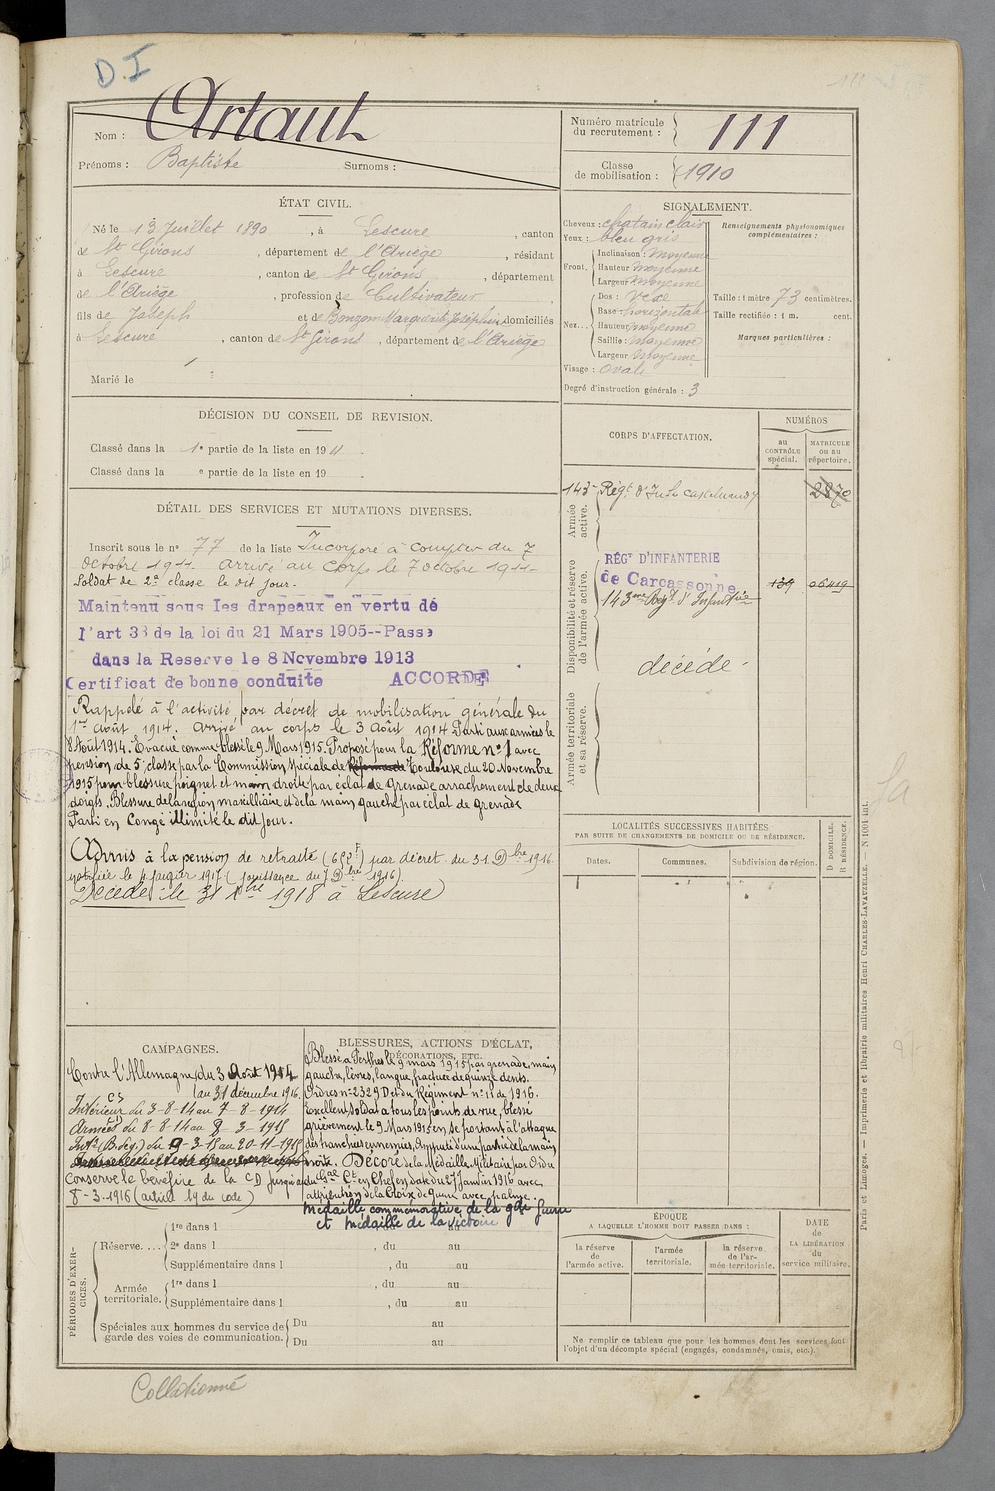 D.I
Nom : Artaut
Prénoms : Baptiste Surnoms :
Numéro matricule du recrutement : 111
Classe de mobilisation : 1910
ÉTAT CIVIL.
Né le 13 Juillet 1890, à Lescure, canton
de St Girons, département de l'Ariège, résidant
à Lescure, canton de St Girons, département
de l'Ariège, profession de Cultivateur,
fils de Joseph et de Bonzom Marguerite Joséphine, domiciliés
à Lescure, canton de St Girons, département de l'Ariège
Marié le
SIGNALEMENT.
Cheveux : chatain clair
Yeux : bleu gris
Front. Inclinaison : moyenne
Hauteur moyenne
Largeur moyenne
Nez... Dos : vexe
Base : horizontale
Hauteur moyenne
Saillie : moyenne
Largeur moyenne
Visage : ovale
Renseignements physionomiques complémentaires :
Taille : 1 mètre 73 centimètres.
Taille rectifiée : 1 m. cent.
Marques particulières :
Degré d'instruction générale : 3
DÉCISION DU CONSEIL DE REVISION.
Classé dans la 1e partie de la liste en 1911
Classé dans la e partie de la liste en 19
DÉTAIL DES SERVICES ET MUTATIONS DIVERSES.
Inscrit sous le no 77 de la liste Incorporé à compter du 7
Octobre 1911. Arrivé au Corps le 7 octobre 1911-
Soldat de 2e classe le dit jour.
Maintenu sous les drapeaux en vertu de
l'art 33 de la loi du 21 Mars 1905--Passé
dans la Reserve le 8 Novembre 1913
Certificat de bonne conduite ACCORDÉ
Rappelé à l'activité par décret de mobilisation générale du
1er août 1914. Arrivé au corps le 3 Août 1914 Parti aux armées le
8 Août 1914. Evacué comme blessé le 9 Mars 1915. Proposé pour la Réforme no 1 avec
pension de 5e classe par la Commission spéciale de Réforme de Toulouse du 20 Novembre
1915 pour blessure poignet et main droite par éclat de grenade arrachement de deux
doigts. Blessure de la région maxilliaire et de la main gauche par éclat de grenade
Parti en Congé illimité le dit jour.
Admis à la pension de retraite (par décret du 31 Dbre 1916.
notifiée le 4 janvier 1917 (jouissance du 7 Dbre 1916)
Décédé le 31 Xbre 1918 à Lescure
CORPS D'AFFECTATION.
NUMÉROS
au CONTRÔLE spécial.
MATRICULE ou au répertoire.
Armée active.
143e Régt d'Inf. Castelnaudary 2870
Disponibilité et réserve de l'armée active.
RÉGt D'INFANTERIE
de Carcassonne 139 06419
143me Régt d'Infanterie
décédé-
Armée territoriale et sa réserve.
LOCALITÉS SUCCESSIVES HABITÉES
PAR SUITE DE CHANGEMENTS DE DOMICILE OU DE RÉSIDENCE.
Dates. Communes. Subdivision de région.
D DOMICILE.
R RÉSIDENCE.
CAMPAGNES.
Contre l'Allemagne du 3 Août 1914
au 31 décembre 1916.
Intérieur du 3-8-14 au 7-8-1914
Armées du 8-8-14 au 8-3-1915
Int. (B.deg.) du 9-3-15 au 20-11-1915
Conserve le bénéfice de la CD jusqu'au
8-3-1916 (article 19 du code)
BLESSURES, ACTIONS D'ÉCLAT,
DÉCORATIONS, ETC.
Blessé à Perthes le 9 mars 1915 par grenade, main
gauche, lèvres, langue, fracture de quinze dents.
Ordres no 2329 D et du Régiment no 11 de 1916.
Excellent soldat à tous les points de vue, blessé
grièvement le 9 Mars 1915 en se portant à l'attaque
des tranchées ennemies, Amputé d'une partie de la main
droite. Décoré de la Médaille Militaire par O. du
Gal Ct en Chef en date du 27 Janvier 1916 avec
attribution de la Croix de guerre avec palme.
Médaille commémorative de la gde guerre
et médaille de la victoire
PÉRIODES D'EXERCICES.
Réserve....
1re dans l , du au
2e dans l , du au
Supplémentaire dans l , du au
Armée territoriale.
1re dans l , du au
Supplémentaire dans l , du au
Spéciales aux hommes du service de garde des voies de communication.
Du au
Du au
ÉPOQUE
A LAQUELLE L'HOMME DOIT PASSER DANS :
la réserve de l'armée active.
l'armée territoriale.
la réserve de l'armée territoriale.
DATE de LA LIBÉRATION du service militaire.
Ne remplir ce tableau que pour les hommes dont les services font
l'objet d'un décompte spécial (engagés, condamnés, omis, etc.).
Paris et Limoges. — Imprimerie et librairie militaires Henri CHARLES-LAVAUZELLE. — N 1001 int.
Collationné